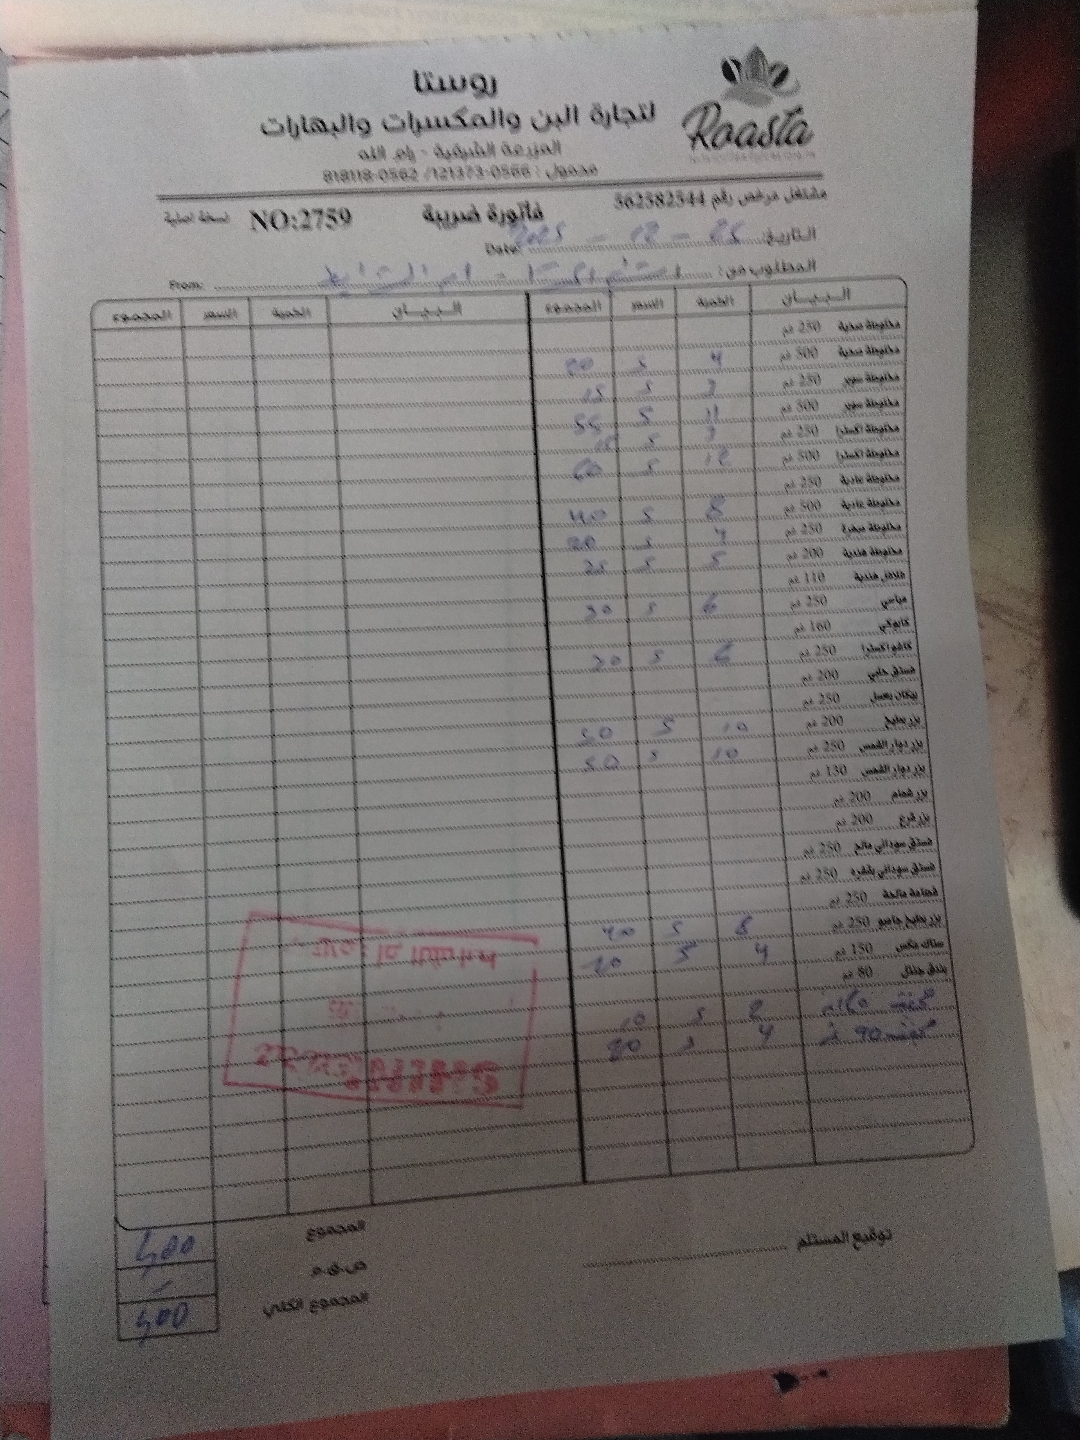 روستا
Roasta
لتجارة البن والمكسرات والبهارات
المزرعة الشرقية - رام الله
محمول : 0566-121373/ 0562-818118
مشتغل مرخص رقم 562582544
فاتورة ضريبية
NO:2759
نسخة اصلية
التاريخ: 25 - 12 - 2025 Date:
المطلوب من: From:
البيان الكمية السعر المجموع البيان الكمية السعر المجموع
مخلوطة صحية 250 غم
مخلوطة صحية 500 غم 4 5 20
مخلوطة سوبر 250 غم 3 5 15
مخلوطة سوبر 500 غم 11 5 55
مخلوطة اكسترا 250 غم 3 5 15
مخلوطة اكسترا 500 غم 12 5 60
مخلوطة عادية 250 غم
مخلوطة عادية 500 غم 8 5 40
مخلوطة 250 غم 4 5 20
مخلوطة هندية 200 غم 5 5 25
فلافل هندية 110 غم
250 غم 6 5 30
160 غم
كاشو اكسترا 250 غم 6 5
فستق حلبي 200 غم
بيكان بعسل 250 غم
بزر بطيخ 200 غم 10 5 50
بزر دوار الشمس 250 غم 10 5 50
بزر دوار الشمس 150 غم
بزر شمام 200 غم
بزر قرع 200 غم
فستق سوداني مالح 250 غم
فستق سوداني بقشره 250 غم
قضامة مالحة 250 غم
بزر بطيخ جامبو 250 غم 8 5 40
سناك مكس 150 غم 4 5 20
بندق 80 غم
2 5 10
90 4 5 20
المجموع
ض.ق.م
المجموع الكلي
توقيع المستلم